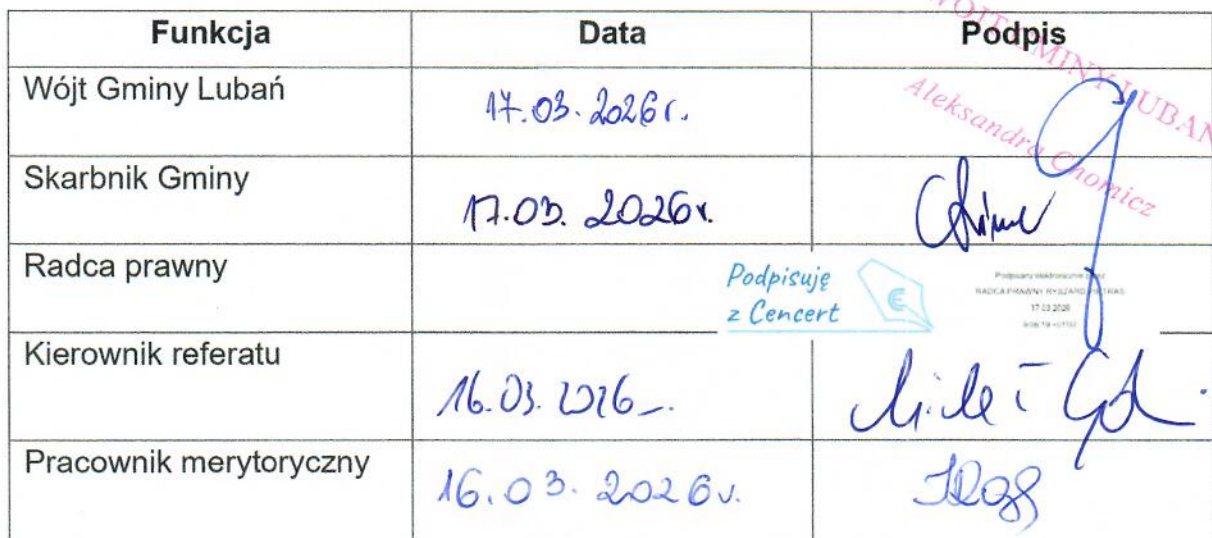 Funkcja Data Podpis
WÓJT GMINY LUBAŃ
Wójt Gminy Lubań 17.03.2026r.
Aleksandra Chomicz
Skarbnik Gminy 17.03. 2026r.
Radca prawny Podpisuję
z Cencert
Podpisany elektronicznie przez
RADCA PRAWNY RYSZARD PIETRAS
17.03.2026
Kierownik referatu 16.03.2026
Pracownik merytoryczny 16.03.2026r.